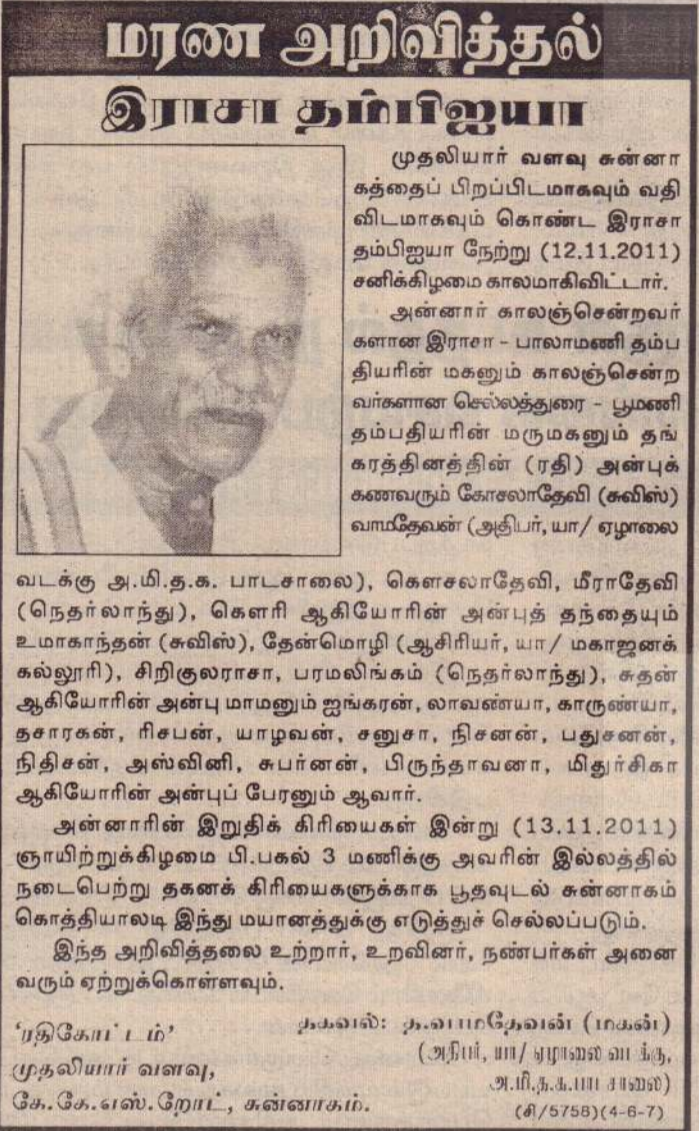 மரண அறிவித்தல்
இராசா தம்பிஐயா
முதலியார் வளவு சுன்னா
கத்தைப் பிறப்பிடமாகவும் வதி
விடமாகவும் கொண்ட இராசா
தம்பிஐயா நேற்று (12.11.2011)
சனிக்கிழமை காலமாகிவிட்டார்.
அன்னார் காலஞ்சென்றவர்
களான இராசா - பாலாமணி தம்ப
தியரின் மகனும் காலஞ்சென்ற
வர்களான செல்லத்துரை - பூமணி
தம்பதியரின் மருமகனும் தங்
கரத்தினத்தின் (ரதி) அன்புக்
கணவரும் கோசலாதேவி (சுவிஸ்)
வாமதேவன் (அதிபர், யா/ ஏழாலை
வடக்கு அ.மி.த.க. பாடசாலை), கௌசலாதேவி, மீராதேவி
(நெதர்லாந்து), கௌரி ஆகியோரின் அன்புத் தந்தையும்
உமாகாந்தன் (சுவிஸ்), தேன்மொழி (ஆசிரியர், யா/ மகாஜனக்
கல்லூரி), சிறிகுலராசா, பரமலிங்கம் (நெதர்லாந்து), சுதன்
ஆகியோரின் அன்பு மாமனும் ஐங்கரன், லாவண்யா, காருண்யா,
தசாரகன், ரிசபன், யாழவன், சனுசா, நிசனன், பதுசனன்,
நிதிசன், அஸ்வினி, சுபர்னன், பிருந்தாவனா, மிதுர்சிகா
ஆகியோரின் அன்புப் பேரனும் ஆவார்.
அன்னாரின் இறுதிக் கிரியைகள் இன்று (13.11.2011)
ஞாயிற்றுக்கிழமை பி.பகல் 3 மணிக்கு அவரின் இல்லத்தில்
நடைபெற்று தகனக் கிரியைகளுக்காக பூதவுடல் சுன்னாகம்
கொத்தியாலடி இந்து மயானத்துக்கு எடுத்துச் செல்லப்படும்.
இந்த அறிவித்தலை உற்றார், உறவினர், நண்பர்கள் அனை
வரும் ஏற்றுக்கொள்ளவும்.
'ரதிகோட்டம்'
முதலியார் வளவு,
கே.கே.எஸ்.றோட், சுன்னாகம்.
தகவல்: த.வாமதேவன் (மகன்)
(அதிபர், யா/ ஏழாலை வடக்கு,
அ.மி.த.க.பாடசாலை)
(சி/5758)(4-6-7)